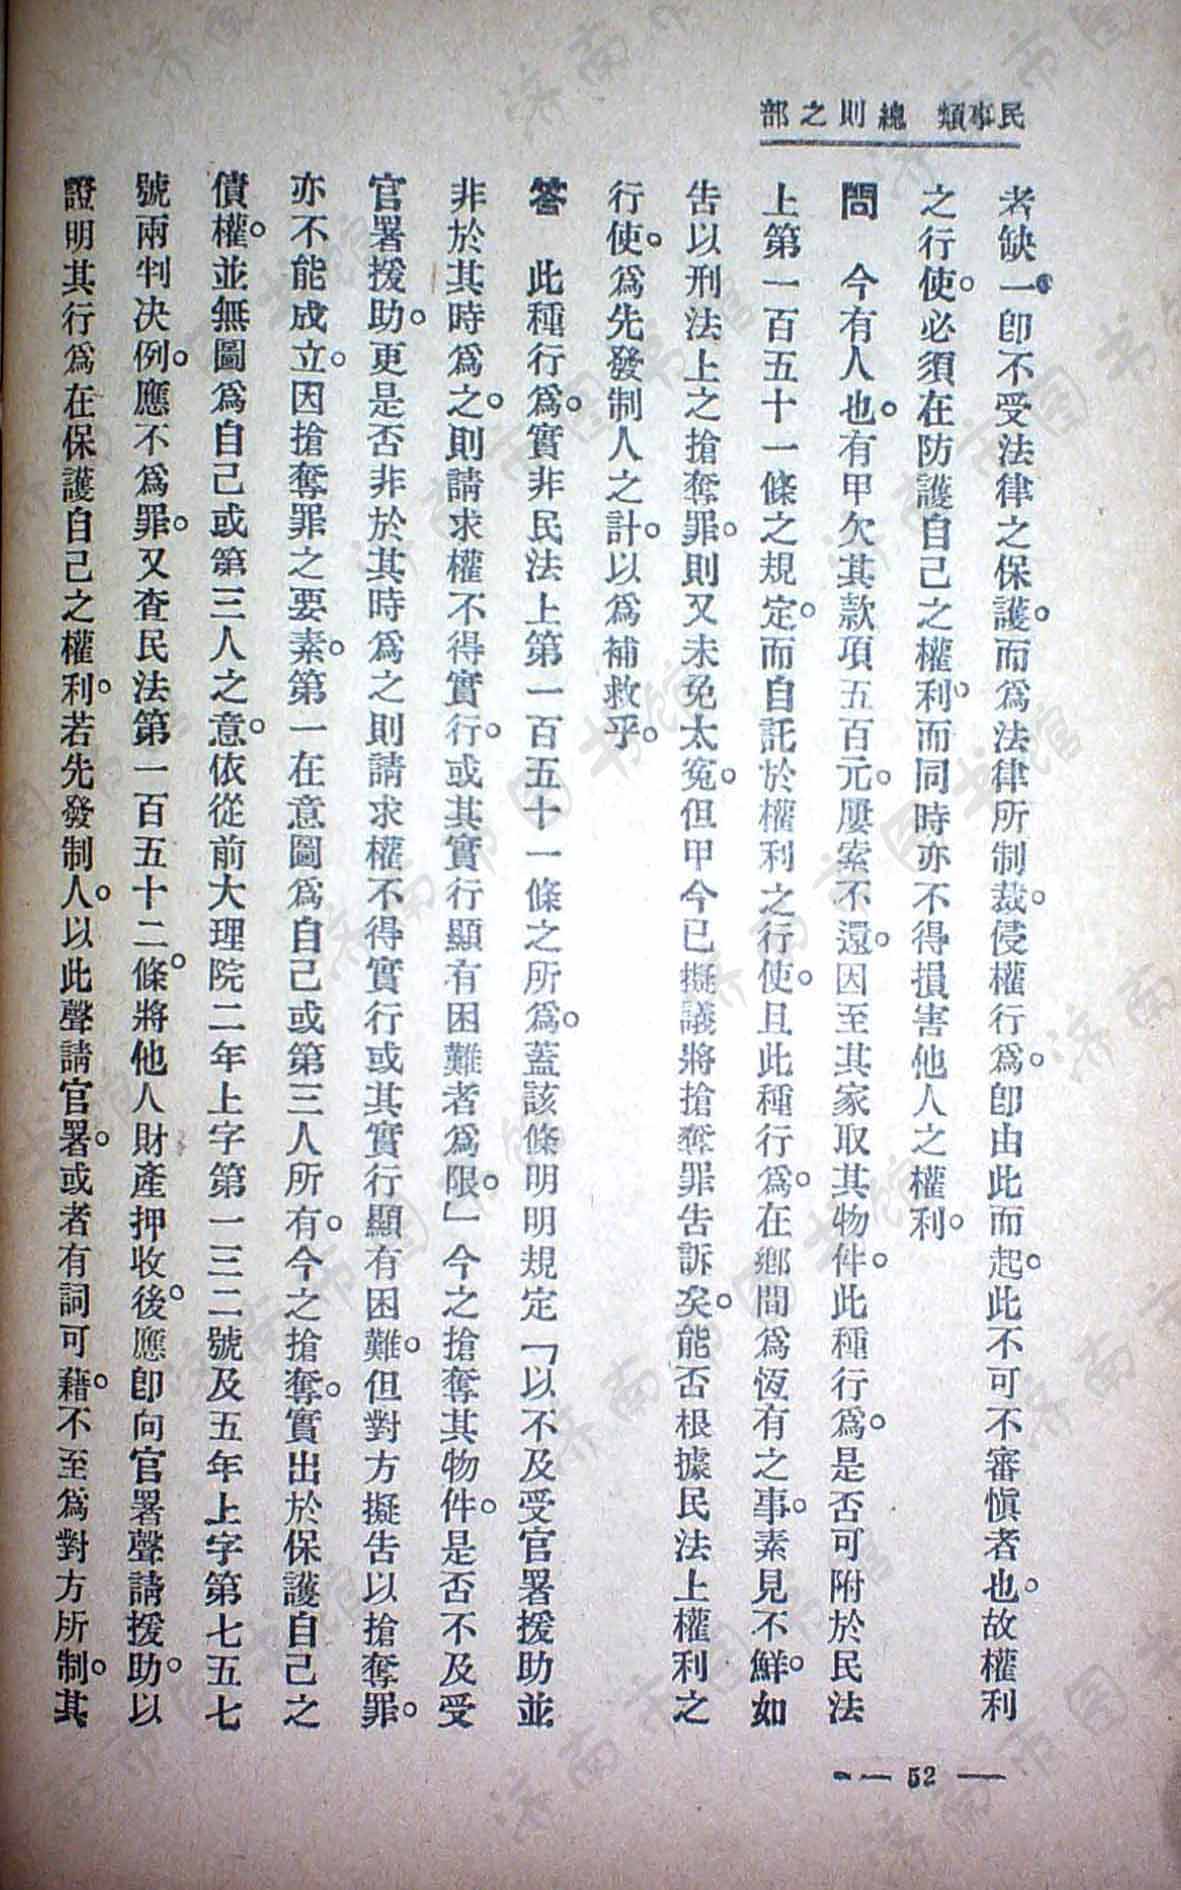 民事類　總則之部
者缺一。卽不受法律之保護。而爲法律所制裁。侵權行爲。卽由此而起。此不可不審愼者也。故權利
之行使。必須在防護自己之權利。而同時亦不得損害他人之權利。
問　今有人也。有甲欠其款項五百元。屢索不還。因至其家取其物件。此種行爲。是否可附於民法
上第一百五十一條之規定。而自託於權利之行使。且此種行爲。在鄉間爲恆有之事。素見不鮮。如
告以刑法上之搶奪罪。則又未免太冤。但甲今已擬議將搶奪罪告訴矣。能否根據民法上權利之
行使。爲先發制人之計。以爲補救乎。
答　此種行爲。實非民法上第一百五十一條之所爲。蓋該條明明規定「以不及受官署援助並
非於其時爲之。則請求權不得實行。或其實行顯有困難者爲限。」今之搶奪其物件。是否不及受
官署援助。更是否非於其時爲之則請求權不得實行或其實行顯有困難。但對方擬告以搶奪罪。
亦不能成立。因搶奪罪之要素。第一在意圖爲自己或第三人所有。今之搶奪。實出於保護自己之
債權。並無圖爲自己或第三人之意。依從前大理院二年上字第一三二號及五年上字第七五七
號兩判决例。應不爲罪。又查民法第一百五十二條。將他人財產押收後。應卽向官署聲請援助。以
證明其行爲在保護自己之權利。若先發制人。以此聲請官署。或者有詞可藉。不至爲對方所制。其
— 52 —
济南市图书馆